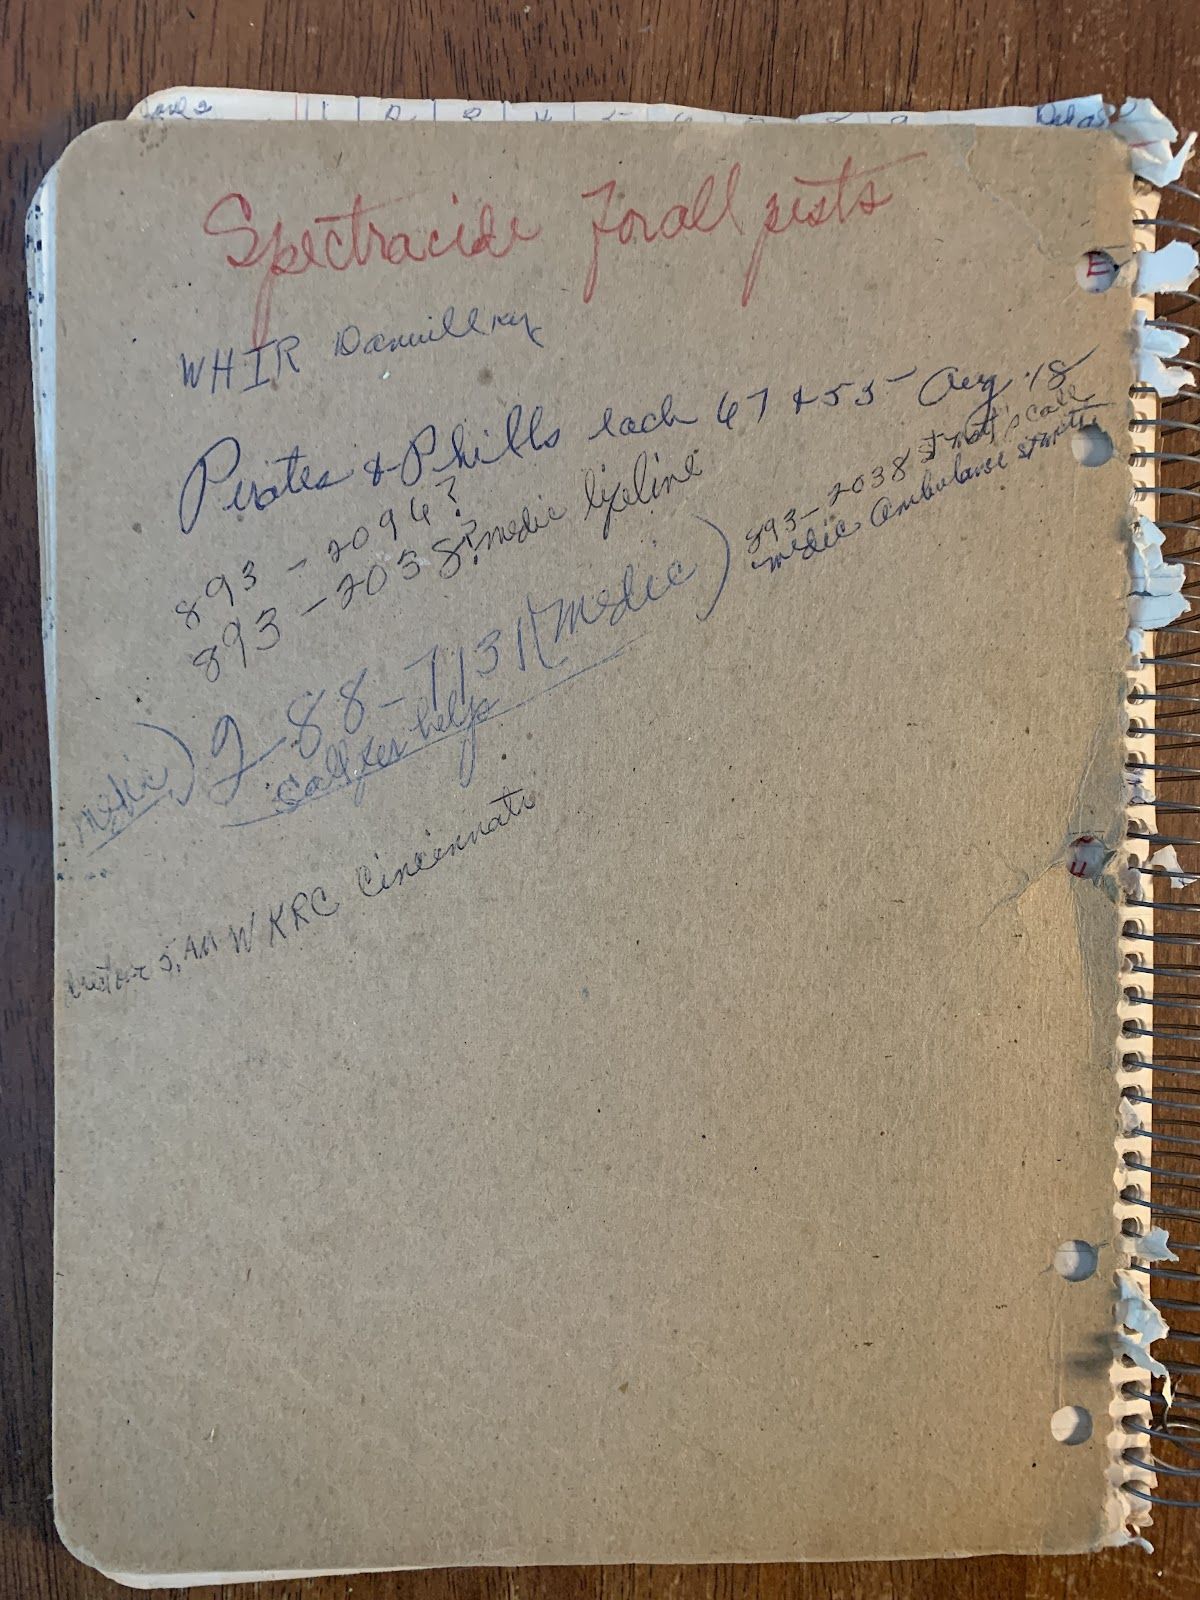 June 2 1 2 3 4 5 6
Spectracide for all pests
WHIR Danvill Ky
Pirates & Phills each 67 & 55 Aug. 18
893-2096?
893-2038? medic lifeline
893-2038 St Mat's call
medic ambulance
medic) 2-88-7131 (medic)
call for help
5, AM WKRC Cincinnati
E